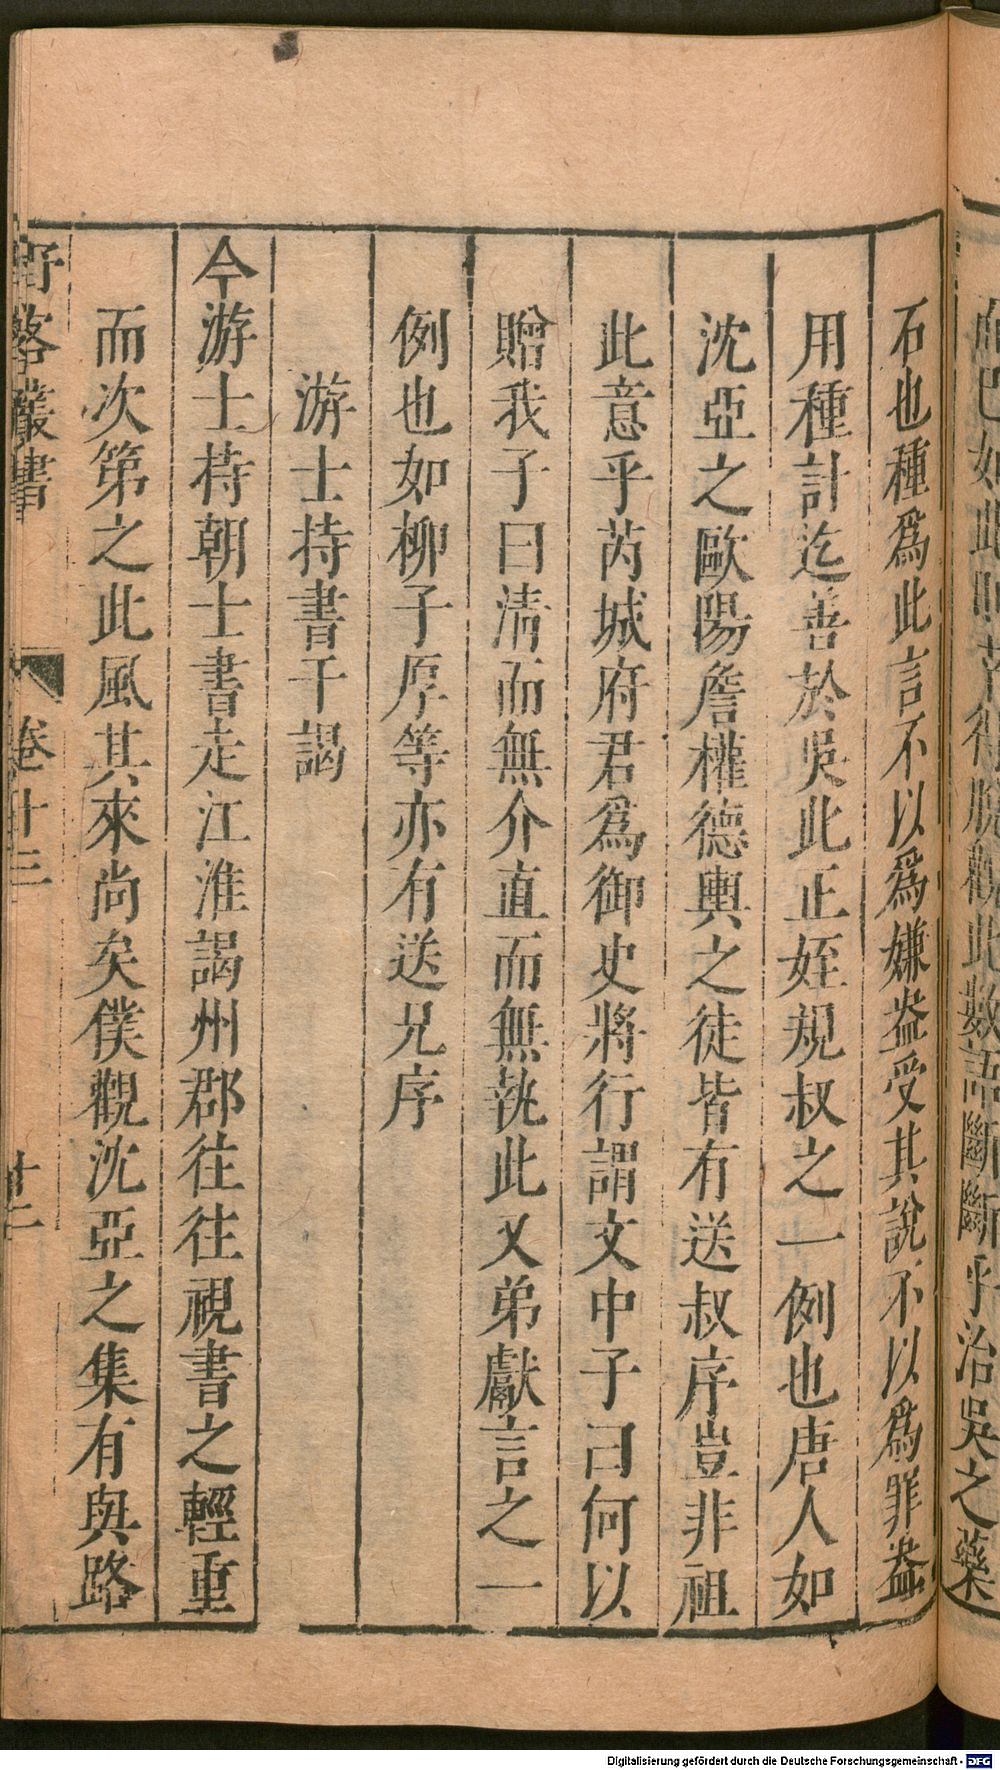 如此
得脫觀此數語斷斷乎治吳之藥
石也種爲此言不以爲嫌盎受其說不以爲罪盎
用種計迄善於吳此正姪規叔之一例也唐人如
沈亞之歐陽詹權德輿之徒皆有送叔序豈非祖
此意乎芮城府君爲御史將行謂文中子曰何以
贈我子曰清而無介直而無執此又弟獻言之一
例也如柳子厚等亦有送兄序
游士持書干謁
今游士持朝士書走江淮謁州郡往往視書之輕重
而次第之此風其來尚矣僕觀沈亞之集有與路
野客叢書
卷十三
十二
Digitalisierung gefördert durch die Deutsche Forschungsgemeinschaft - DFG